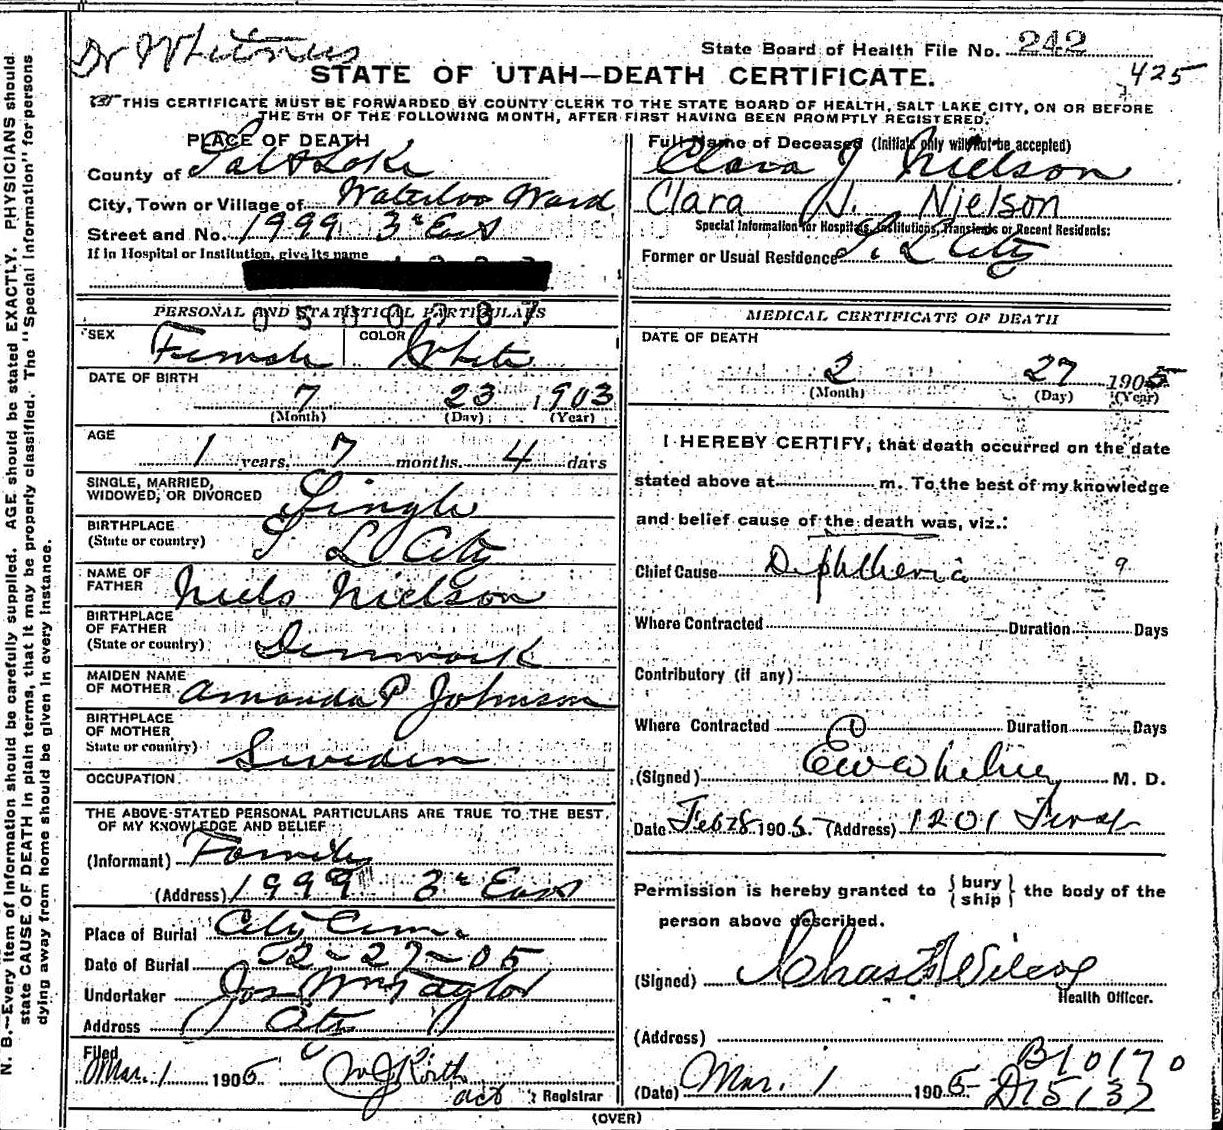 Dr Whitney
State Board of Health File No. 242
425
STATE OF UTAH—DEATH CERTIFICATE.
THIS CERTIFICATE MUST BE FORWARDED BY COUNTY CLERK TO THE STATE BOARD OF HEALTH, SALT LAKE CITY, ON OR BEFORE
THE 5TH OF THE FOLLOWING MONTH, AFTER FIRST HAVING BEEN PROMPTLY REGISTERED.
PLACE OF DEATH
County of Salt Lake
City, Town or Village of Waterloo Ward
Street and No. 1999 3rd East
If in Hospital or Institution, give its name
PERSONAL AND STATISTICAL PARTICULARS
SEX Female COLOR White
DATE OF BIRTH
7 23 1903
(Month) (Day) (Year)
AGE
1 years, 7 months. 4 days
SINGLE, MARRIED,
WIDOWED, OR DIVORCED Single
BIRTHPLACE
(State or country) S L City
NAME OF
FATHER Niels Nielson
BIRTHPLACE
OF FATHER
(State or country) Denmark
MAIDEN NAME
OF MOTHER Amanda P Johnson
BIRTHPLACE
OF MOTHER
State or country) Sweden
OCCUPATION
THE ABOVE-STATED PERSONAL PARTICULARS ARE TRUE TO THE BEST
OF MY KNOWLEDGE AND BELIEF
(Informant) Family
(Address) 1999 3rd East
Place of Burial City Cem.
Date of Burial 2-27-05
Undertaker Jos Wm Taylor
Address City
Filed
Mar. 1 1905
act Registrar
Full Name of Deceased (Initials only will not be accepted)
Clara J Nielson
Clara J. Nielson
Special Information for Hospitals, Institutions, Transients or Recent Residents:
Former or Usual Residence S. L City
MEDICAL CERTIFICATE OF DEATH
DATE OF DEATH
2 27 1905
(Month) (Day) (Year)
I HEREBY CERTIFY, that death occurred on the date
stated above at m. To the best of my knowledge
and belief cause of the death was, viz.:
Chief Cause Diphtheria 9
Where Contracted Duration Days
Contributory (if any)
Where Contracted Duration Days
(Signed) M. D.
Date Feb 28 1905 (Address) 1201
Permission is hereby granted to { bury
ship } the body of the
person above described.
(Signed) Chas Wilcox
Health Officer.
(Address)
B10170
(Date) Mar. 1 1905 D15137
(OVER)
N. B.—Every item of information should be carefully supplied. AGE should be stated EXACTLY. PHYSICIANS should
state CAUSE OF DEATH in plain terms, that it may be properly classified. The "Special Information" for persons
dying away from home should be given in every instance.